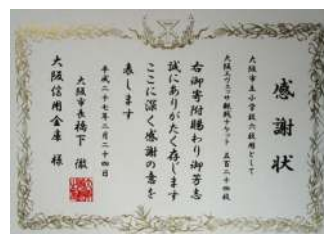 感謝状
大阪市立小学校六校用として
大阪エヴェッサ観戦チケット 五百二十四枚
右御寄附賜わり御芳志
誠にありがたく存じます
ここに深く感謝の意を
表します
平成二十七年二月二十四日
大阪市長 橋下 徹
大阪信用金庫 様